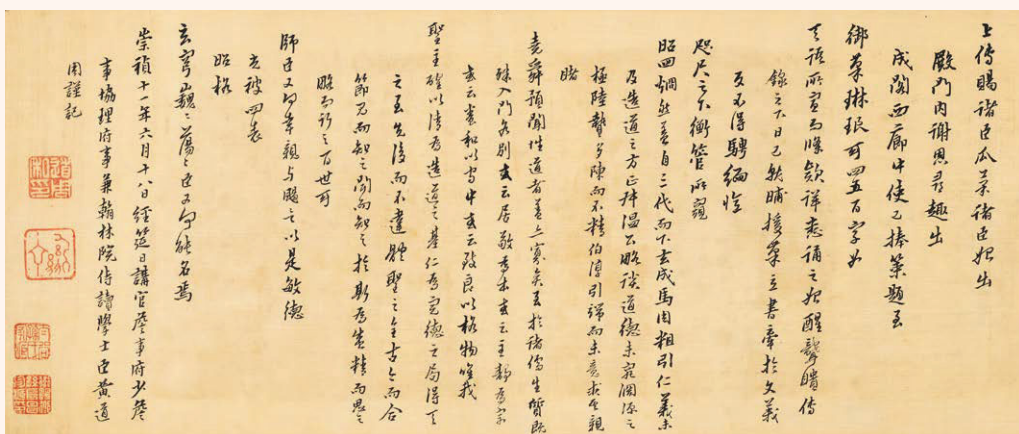 上傳賜諸臣瓜菜諸臣始出
殿門内谢恩尋趨出
成閣西廊中使已捧策題至
御草琳琅可四五百字如
天語所宣而條款詳悉诵之如醒聾聵傳
錄之下日已晡援藁立書牽於文義
反不得騁緬惟
咫尺之下衝管所窺
昭回炳然蓋自三代而下玄成馬周粗引仁義未
及造道之方正叔温公略談道德未窮淵源之
極陸贄多陳而不精伯淳引端而未竟求其親
睹
堯舜預聞性道者蓋亦寡矣至於諸儒生質既
殊入門各别或云居敬爲本或云主静爲宗
或云養和以守中或云致良以格物唯我
聖主確以清爲造道之基仁爲完德之局得
之至先後而不違體聖之全古今而合
節見而知之聞而知之於斯爲盛精而思之
略而行之百世可
師臣又何幸親与颺之以是敏德
光被四表
昭格
玄穹巍巍蕩蕩臣又何能名焉
崇禎十一年六月十八日經筵日講官詹事府少詹
事協理府事兼翰林院侍讀學士臣黄道
周謹記